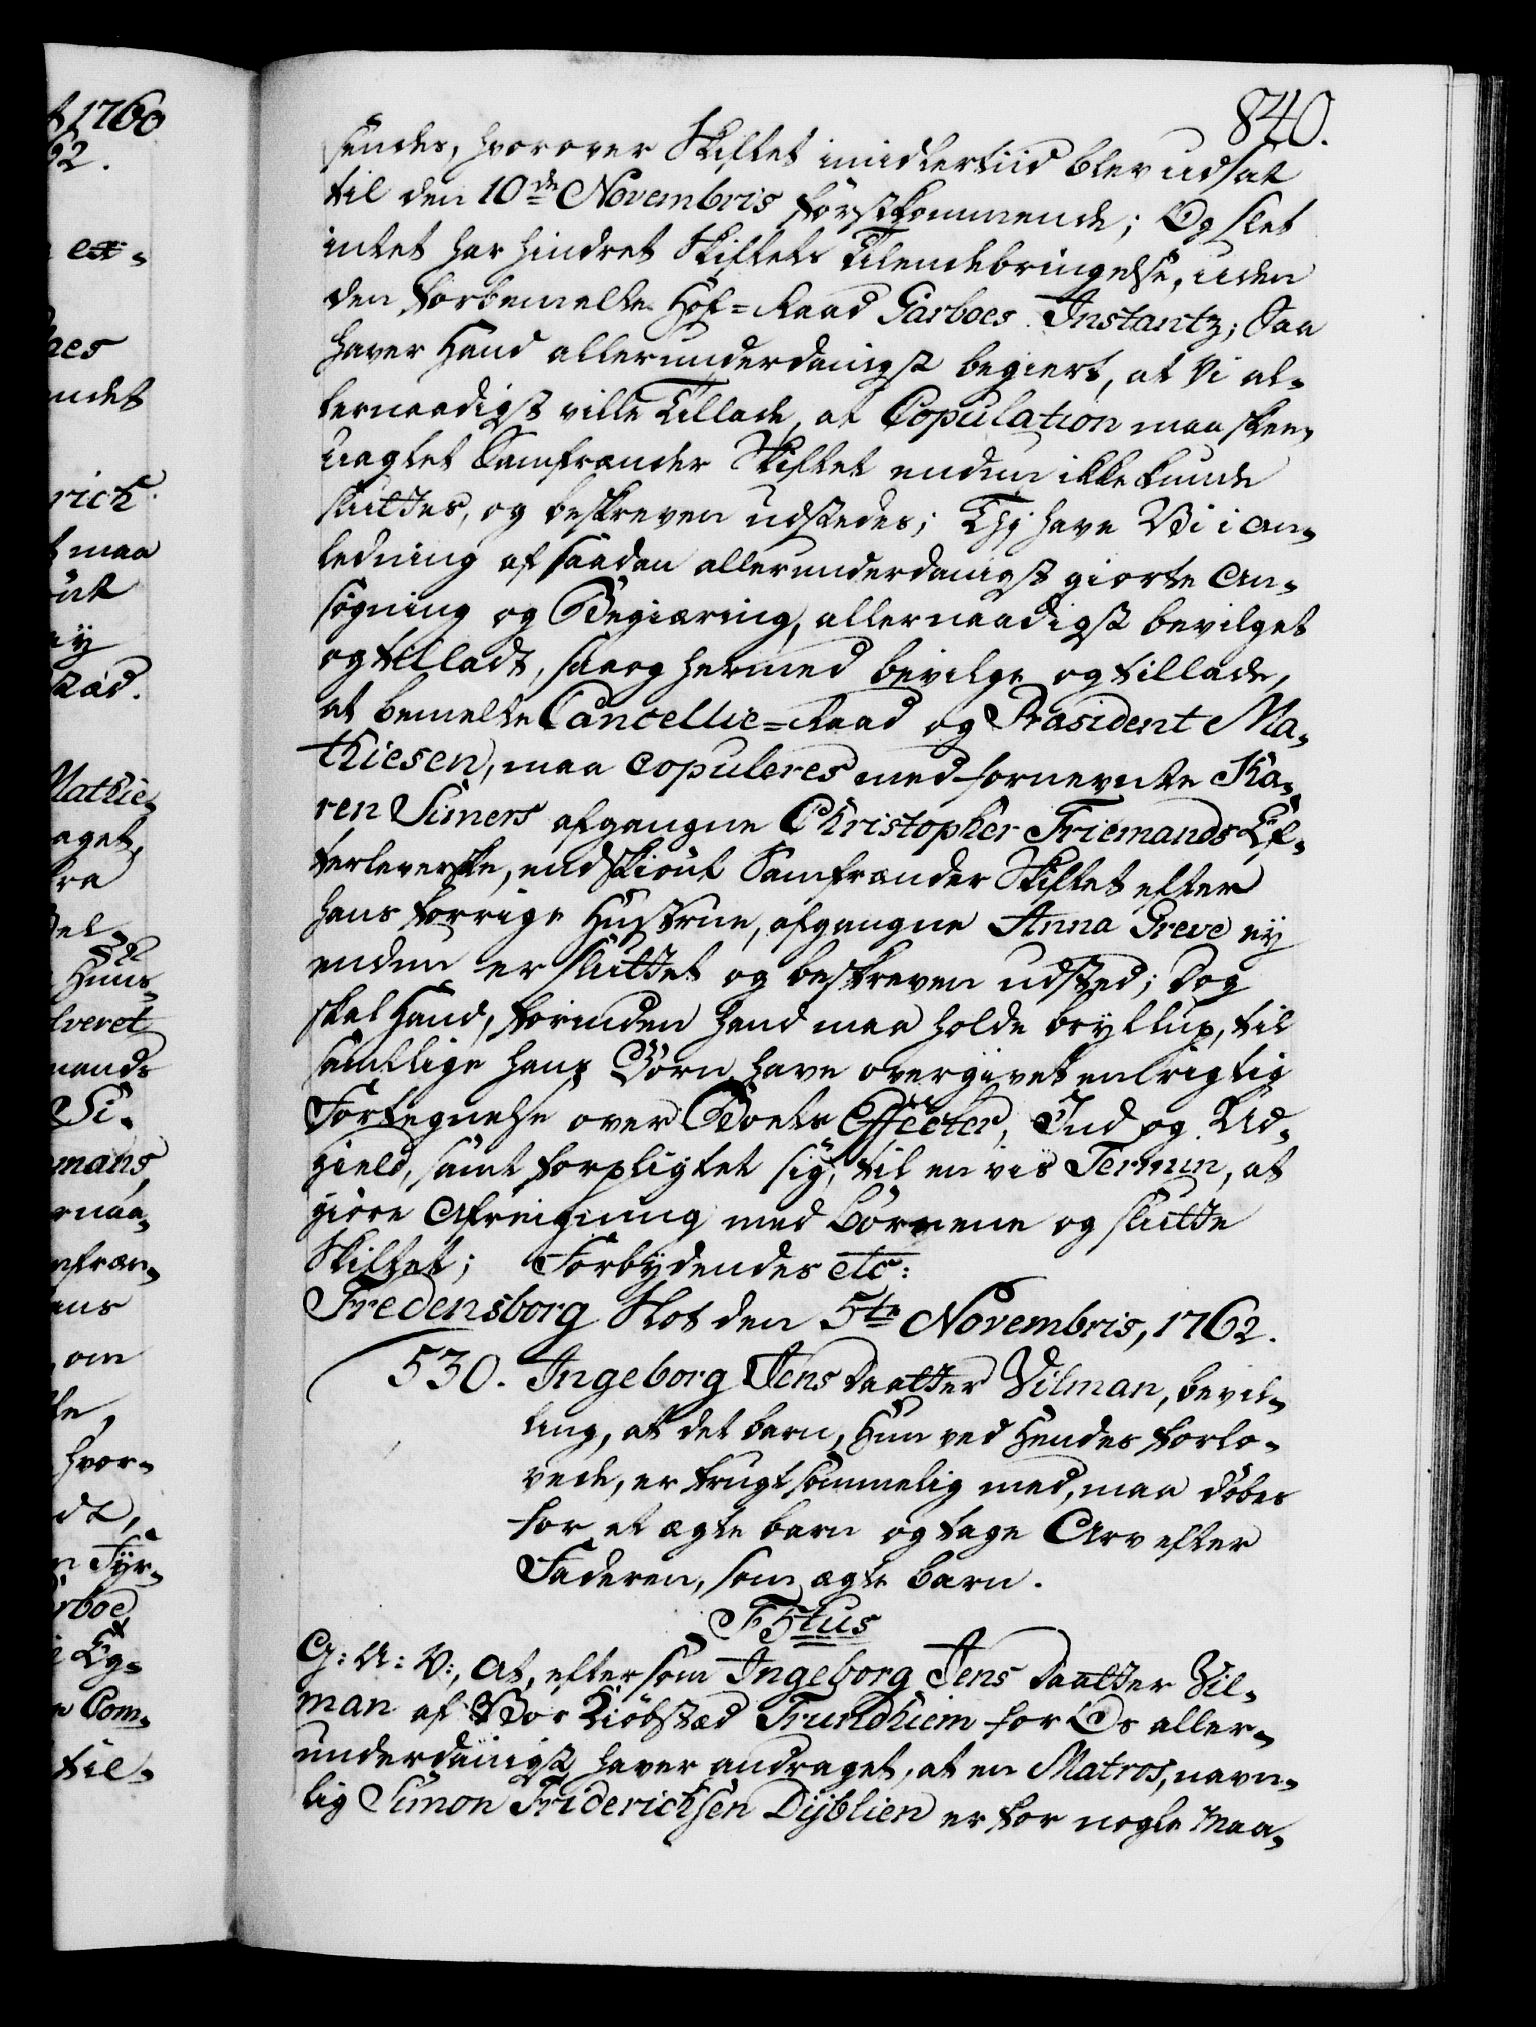 840.
sendes, hvorover Skiftet imidlertiid blev udsat
til den 10de Novembris förstkommende; Og slet
intet har hindret Skiftets tilendebringelse, uden
den forbemelte Hof-Raad Garboes Instantz; Saa
haver Hand allerunderdanigst begiert, at Vi al-
lernaadigst ville Tillade, at Copulation maa skee,
uagtet Samfrænder Skiftet endnu ikke kunde
sluttes, og beskreven udstedes; Thj have Vi i an-
ledning af saadan allerunderdanigst giorte An-
sögning og Begiæring, allernaadigst bevilget
og tilladt, saa og hermed bevilge og tillade,
at bemelte Cancellie-Raad og Præsident Ma-
thiesen, maa copuleres med fornevnte Ka-
ren Simers afgangne Christopher Friemands Ef-
terleverske, endskiönt Samfrænder Skiftet efter
hans forrige Hustrue, afgangne Anna Greve ey
endnu er sluttet og beskreven udsted; Dog
skal Hand, forinden Hand maa holde bryllup, til
samtlige hans Börn have overgivet en rigtig
Fortegnelse over Boets Effecter, Ind og Ud-
gield, samt forpligtet sig, til en vis Termin, at
giöre Afreigning med Börnene og slutte
Skiftet; Forbydendes etc:
Fredensborg Slot den 5te Novembris, 1762.
530. Ingeborg Jens Daatter Vilman, bevil-
ling, at det barn, Hun ved Hendes forlo-
vede, er frugtsommelig med, maa döbes
for et ægte barn og tage Arv efter
Faderen, som ægte Barn.
F 5tus
G: A: V:, At, eftersom Ingeborg Jens Daatter Vil-
man af Vor Kiöbsted Trundhiem for Os aller-
underdanigst haver andraget, at en Matros, navn-
lig Simon Friderichsen Dyblien er for nogle Maa-